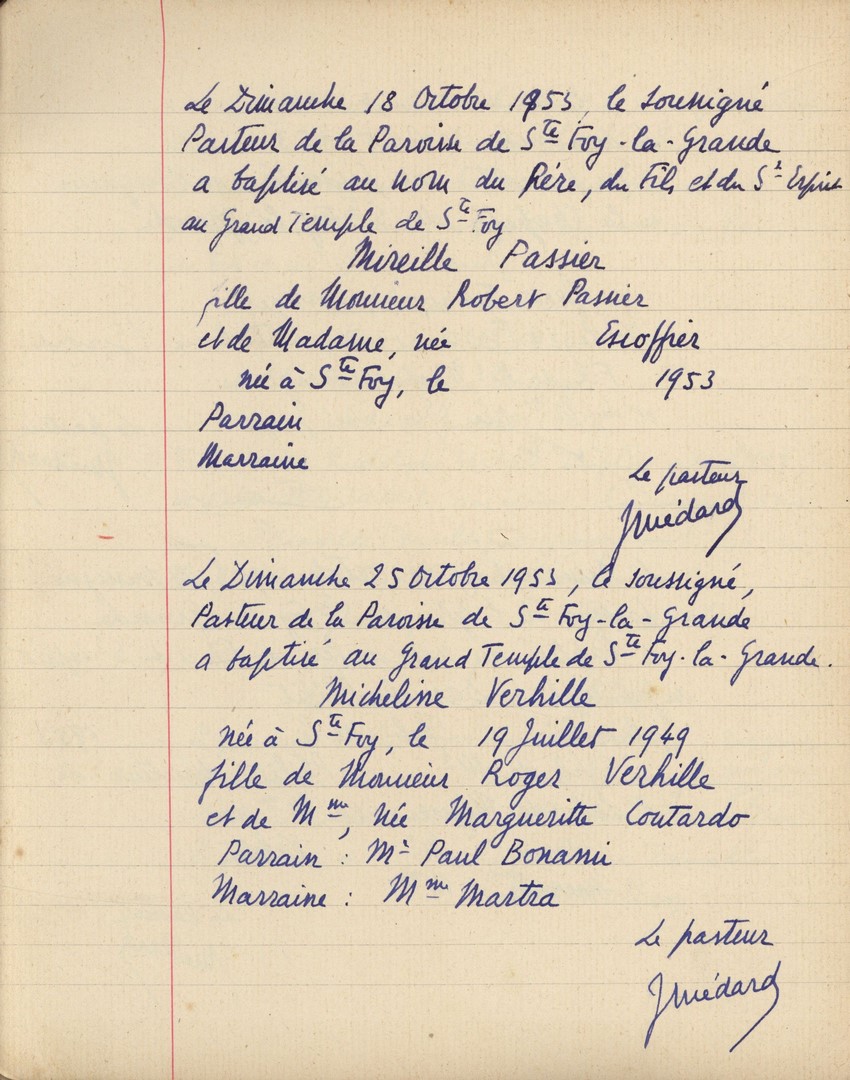 Le Dimanche 18 Octobre 1953, le soussigné
Pasteur de la Paroisse de Ste Foy-la-Grande
a baptisé au nom du Père, du Fils et du St Esprit
au Grand Temple de Ste Foy
Mireille Passier
fille de Monsieur Robert Passier
et de Madame, née Escoffier
née à Ste Foy, le 1953
Parrain
Marraine
Le pasteur
Le Dimanche 25 Octobre 1953, le soussigné,
Pasteur de la Paroisse de Ste Foy-la-Grande
a baptisé au Grand Temple de Ste Foy-la-Grande.
Micheline Verhille
née à Ste Foy, le 19 Juillet 1949
fille de Monsieur Roger Verhille
et de Mme, née Margueritte Coutardo
Parrain : Mr Paul Bonami
Marraine : Mme Martra
Le pasteur